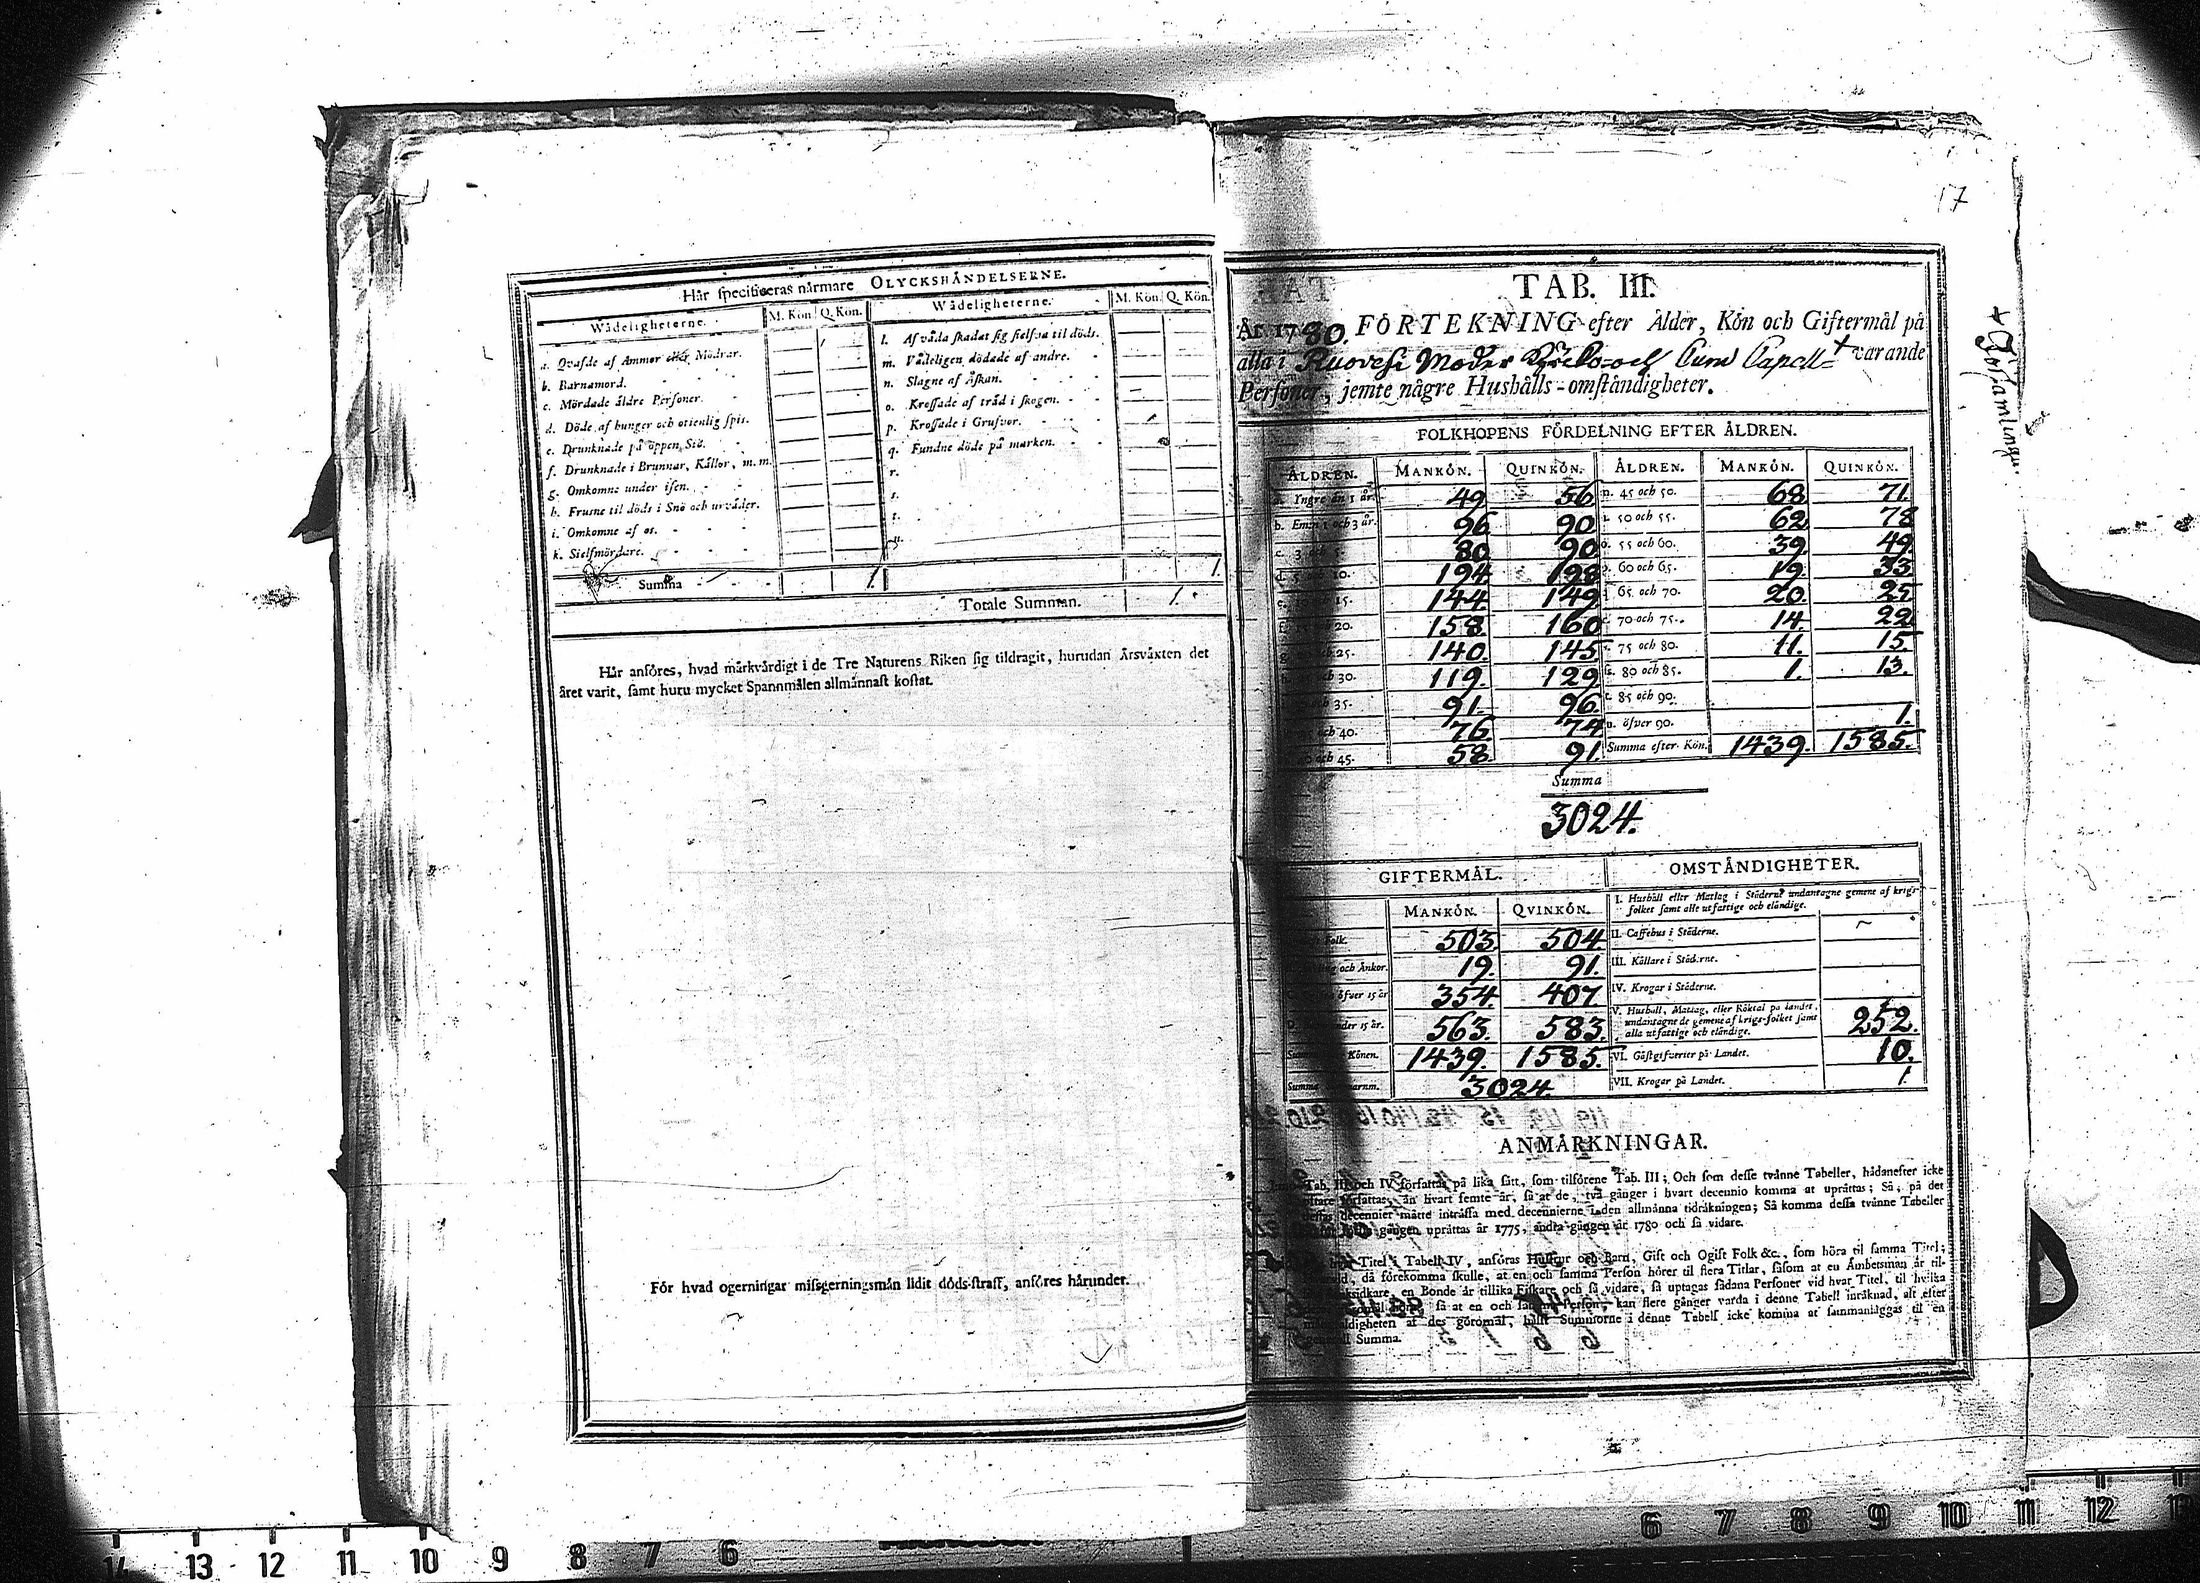 Hår specificeras nårmare OLYCKSHÅNDELSERNE.
Wådeligheterne. M. Kön. Q. Kön. Wådeligheterne. M. Kön. Q. Kön.
a. Qvafde af Ammor eller Mödrar.
b. Barnamord.
c. Mördade åldre Personer.
d. Döde af hunger och otienlig spis.
e. Drunknade på öppen Siö.
f. Drunknade i Brunnar, Kållor, m. m.
g. Omkomne under isen.
h. Frusne til döds i Snö och urvåder.
i. Omkomne af os.
k. Sielfmördare.
Summa 1.
l. Af våda skadat sig sielfva til döds.
m. Vådeligen dödade af andre.
n. Slagne af Åskan.
o. Krossade af tråd i skogen.
p. Krossade i Grufvor.
q. Fundne döde på marken.
r.
s.
t.
u.
1.
Totale Summan. 1.
Hår anföres, hvad mårkvårdigt i de Tre Naturens Riken sig tildragit, hurudan Årsvåxten det
året varit, samt huru mycket Spannmålen allmånnast kostat.
För hvad ogerningar missgerningsmån lidit döds-straff, anföres hårunder.
17
TAB. III.
År 1780. FÖRTEKNING efter Ålder, Kön och Giftermål på
alla i Ruovesi Moder Kyrko och Capell varande
Personer, jemte någre Hushålls-omståndigheter.
Församlingar
FOLKHOPENS FÖRDELNING EFTER ÅLDREN.
ÅLDREN. MANKÖN. QUINKÖN. ÅLDREN. MANKÖN. QUINKÖN.
a. Yngre ån 1 år. 49 56 m. 45 och 50. 68 71.
b. Emn 1 och 3 år. 96 90 50 och 55. 62 78
c. 3 och 5. 80 90 55 och 60. 39 49
d. 10. 194 198 60 och 65. 19 33
15. 144 149 65 och 70. 20 25
20. 158 160 70 och 75. 14 22
25. 140. 145 75 och 80. 11. 15.
30. 119. 129 s. 80 och 85. 1. 13.
35. 91. 96. t. 85 och 90.
och 40. 76. 74 u. öfver 90. 1.
och 45. 58 91. Summa efter Kön. 1439. 1585.
Summa
3024.
GIFTERMÅL. OMSTÅNDIGHETER.
MANKÖN. QVINKÖN.
Folk. 503. 504.
och Ånkor. 19. 91.
öfver 15 år 354. 407.
under 15 år. 563. 583.
Könen. 1439. 1585.
Summa 3024.
I. Hushåll eller Matlag i Ståderne undantagne gemene af krigs-
folket samt alle utfattige och elåndige.
II. Caffehus i Ståderne.
III. Kållare i Ståderne.
IV. Krogar i Ståderne.
V. Hushåll, Matlag, eller Röktal på landet,
undantagne de gemene af krigs-folket samt
alla utfattige och elåndige. 252.
VI. Gåstgifverier på Landet. 10.
VII. Krogar på Landet. 1.
ANMÅRKNINGAR.
Tab. III och IV författas på lika sått, som tilförene Tab. III; Och som desse tvånne Tabeller, hådanefter icke
författas, ån hvart femte år, så at de, två gånger i hvart decennio komma at upråttas; Så, på det
dessas decennier måtte intråffa med decennierne i den allmånna tidråkningen; Så komma dessa tvånne Tabeller
gången upråttas år 1775, andra gången år 1780 och så vidare.
Titel i Tabell IV, anföras Hustrur och Barn, Gift och Ogift Folk &c., som höra til samma Titel;
då förekomma skulle, at en och samma Person hörer til flera Titlar, såsom at en Åmbetsman år til-
en Bonde år tillika Fiskare och så vidare, så uptagas sådana Personer vid hvar Titel, til hvilka
så at en och samma Person, kan flere gånger varda i denne Tabell inråknad, alt efter
af des göromål, hålst Summorne i denne Tabell icke komma at sammanlåggas til en
Summa.